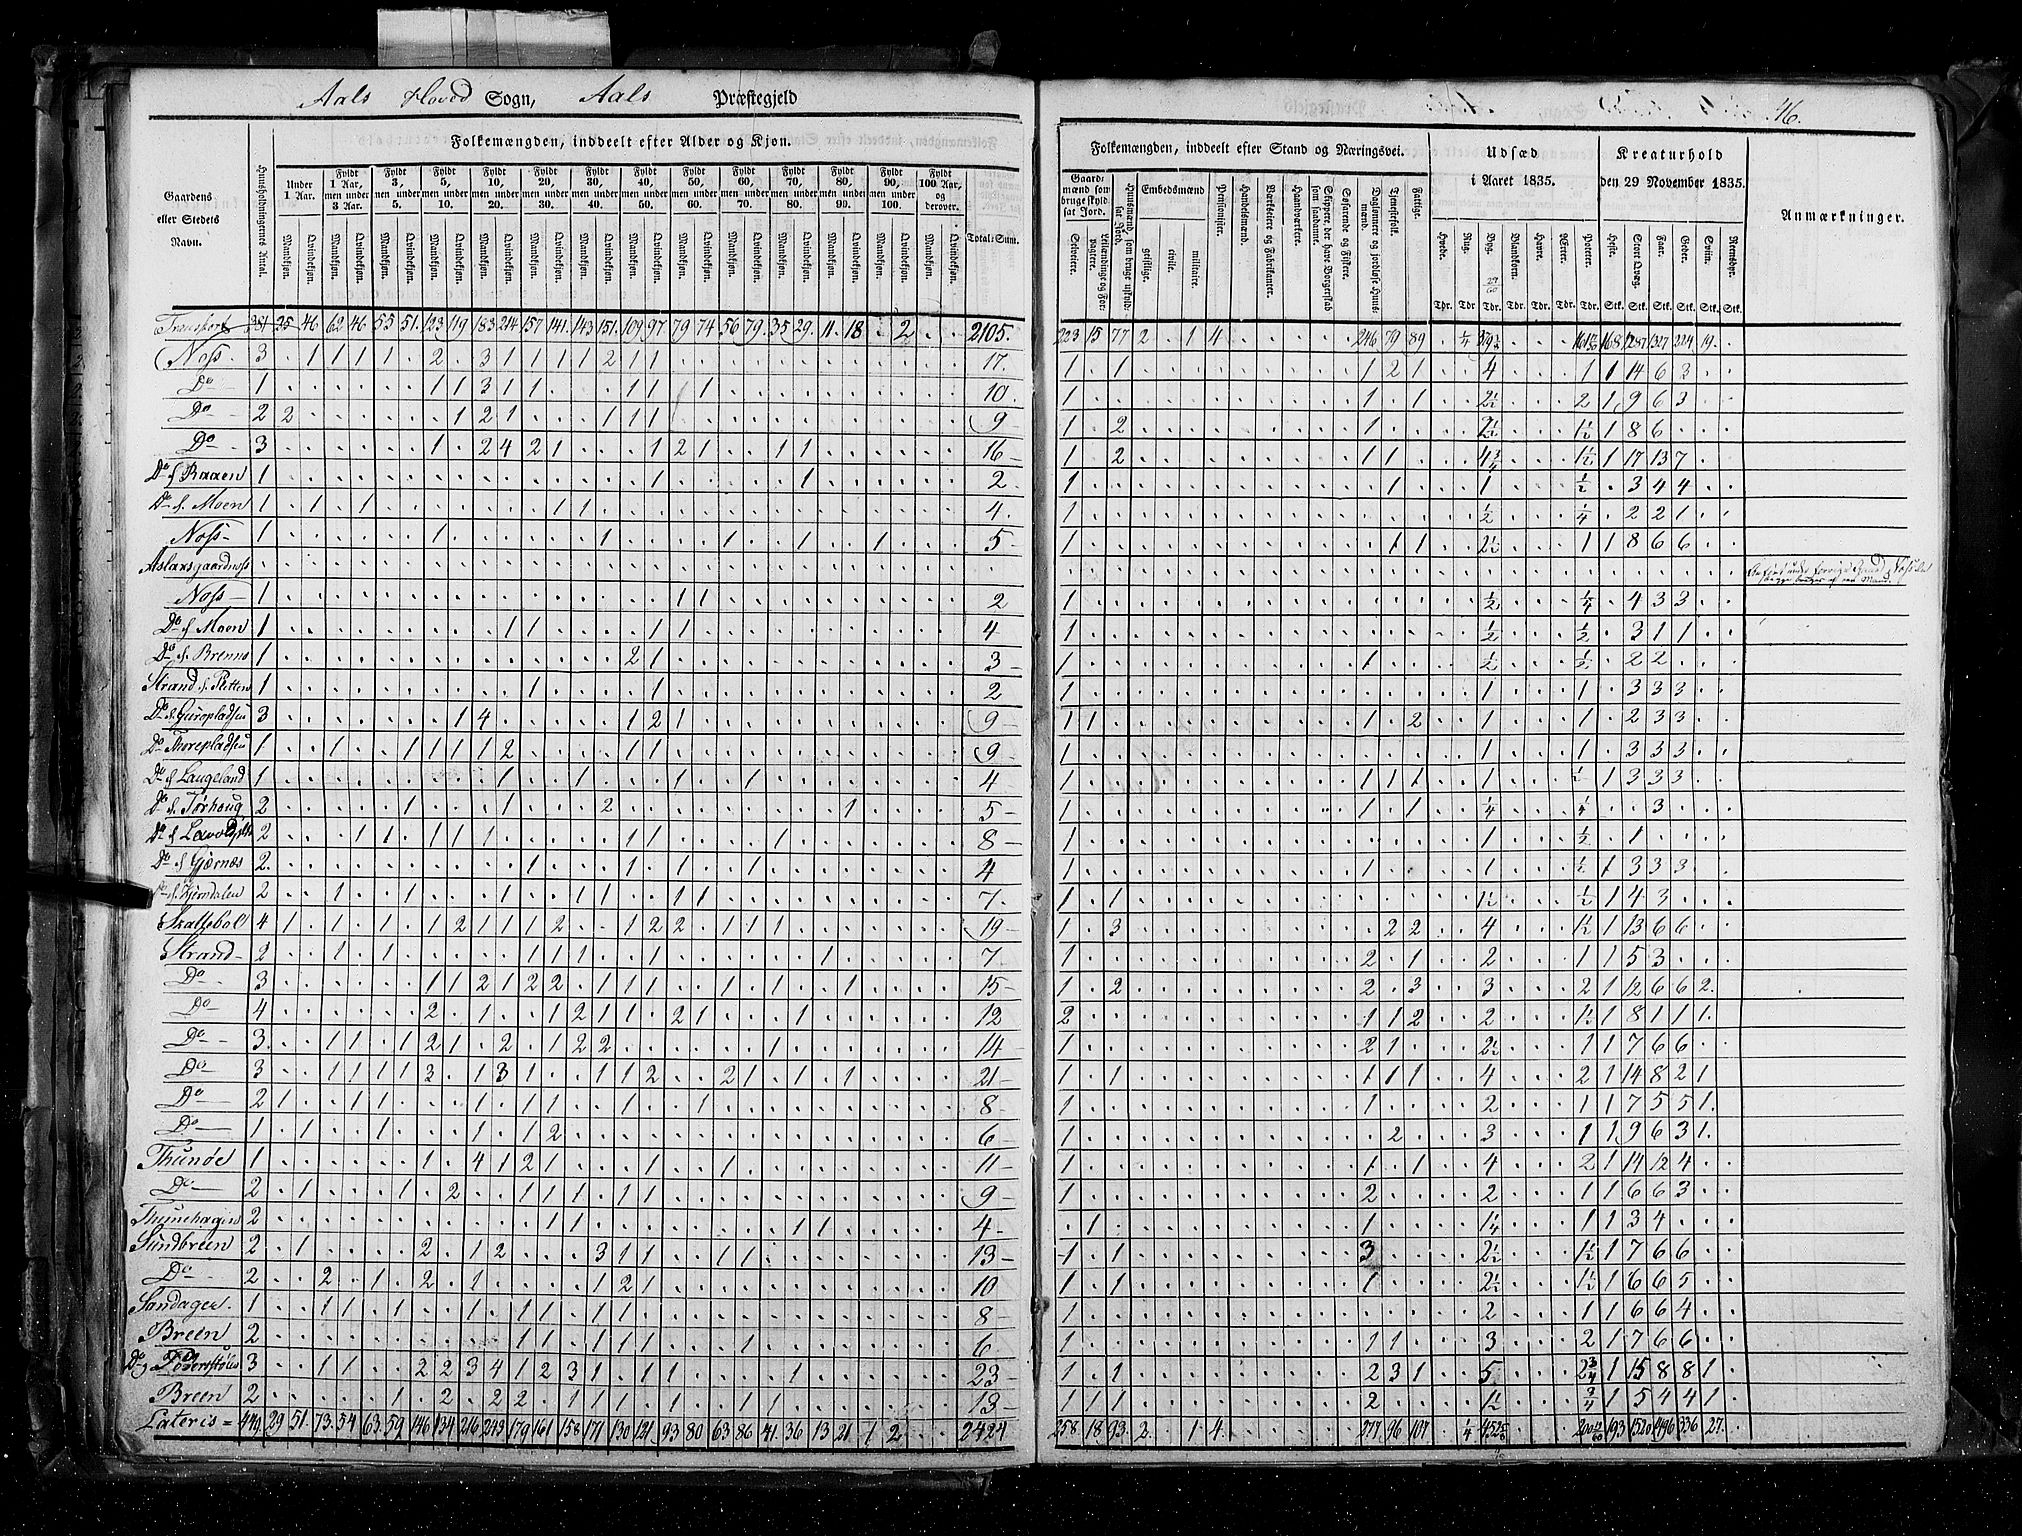 Aals Hoved Sogn, Aals Præstegjeld
46.
Gaardens eller Stedets Navn.
Huusholdningernes Antal.
Folkemængden, inddeelt efter Alder og Kjøn.
Under 1 Aar.
Fyldt 1 Aar, men under 3 Aar.
Fyldt 3, men under 5.
Fyldt 5, men under 10.
Fyldt 10, men under 20.
Fyldt 20, men under 30.
Fyldt 30, men under 40.
Fyldt 40, men under 50.
Fyldt 50, men under 60.
Fyldt 60, men under 70.
Fyldt 70, men under 80.
Fyldt 80, men under 90.
Fyldt 90, men under 100.
Fyldt 100 Aar, og derover.
Mandkjøn. Qvindekjøn.
Total-Sum.
Folkemængden, inddeelt efter Stand og Næringsvei.
Gaardmænd som bruge skyldsat Jord.
Selveiere.
Leilændinge og Forpagtere.
Huusmænd, som bruge uskyldsat Jord.
Embedsmænd
geistlige.
civile.
militaire.
Pensionister.
Handelsmænd.
Værkseiere og Fabrikanter.
Haandværkere.
Skippere, der have Borgerskab som saadanne.
Søfarende og Fiskere.
Daglønnere og jordløse Huusmænd.
Tjenestefolk.
Fattige.
Udsæd i Aaret 1835.
Hvede. Rug. Byg. Blandkorn. Havre. Erter. Poteter.
Tdr. Tdr. Tdr. Tdr. Tdr. Tdr. Tdr.
Kreaturhold den 29 November 1835.
Heste. Stort Qvæg. Faar. Geder. Sviin. Rensdyr.
Stk. Stk. Stk. Stk. Stk. Stk.
Anmærkninger.
Transport 46 62 46 55 51. 123 119 183 214 157 141 143 151 109 97 79 74 56 79. 35 29. 11. 18 2 2105. 223 15 77 2 1 4 246 79 89 19
Noss. 3 1 1 1 1 2 3 1 1 1 1 2 1 1 17. 1 1 1 2 1 4 1 1 14 6 3
Do 1 1 1 3 1 1 1 1 1 10. 1 1 1 2½ 2 1 9 6 3
Do 2 2 1 2 1 1 1 1 9 1 2 1 2½ 1½ 1 8 6
Do 3 1 2 4 2 1 1 2 1 1 1 16 1 2 1 1 4¾ 1½ 1 17 13 7
Do s Raaen 1 1 1 2 1 1 1 ½ 3 4 4
Do s. Moen 1 1 1 1 1 4. 1 ½ ¼ 2 2 1
Noss 1 1 1 1 1 1 5 1 1 1 2½ 1 1 8 6 6
Aslaksgaardnoss
Noss 1 1 1 2 1 ½ ¼ 4 3 3
Do s Moen 1 1 1 1 1 4 1 ½ ½ 3 1 1
Do s. Brenno 1 2 1 3 1 1 ½ ½ 2 2
Strand s. Sletten 1 1 1 2 1 1 1 3 3 3
Do s. Guropladsen 3 1 4 1 2 1 9 1 1 1 2 1 1 2 3 3
Do Thorepladsen 1 1 1 1 1 1 2 1 1 9 1 1 1 3 3 3
Do s Laugeland 1 1 1 1 1 4 1 1 1 1 1 ½ 1 3 3 3
Do s. Torhoug 2 1 1 2 1 5 1 1 1 ¼ ¼ 3
Do s 2 1 1 1 1 1 1 1 1 8 1 1 ½ 1
Do s Gjernæs 2. 1 1 1 1 4 1 1 1 ½ 1 3 3 3
Do s. Hjerndalen 2 1 1 1 1 1 1 1 7. 1 1 1½ ½ 1 4 3
Skattebol 4 1 1 1 1 2 1 1 1 2 1 2 2 1 1 1 19 1 3 2 2 4 1½ 1 13 6 6
Strand 2 1 1 1 1 1 1 1 7. 1 2 1 2 1 1 5 3
Do 3 1 1 2 1 2 2 1 1 1 1 1 1 15 1 2 2 3 3 2 1 12 6 6 2.
Do 4 2 1 1 2 1 1 2 1 1 12 2 1 1 2 2 1½ 1 8 1 1 1.
Do 3. 1 1 1 2 1 2 1 2 2 1 14 1 2 1 2½ 1 1 7 6 6
Do 3 1 1 1 1 3 1 3 1 1 1 2 2 1 1 1 21 1 1 1 1 1 4 2 1 14 8 2 1
Do 2 1 1 1 1 1 1 1 1 8 1 1 2 1 1 7 5 5 1.
Do 1 1 1 1 1 2 6 1 2 3 1 1 9 6 3 1.
Thunøe 1 1 4 1 2 1 1 1 11 1 1 1 4 2 1 14 12 4
Do 2 1 1 2 1 1 1 1 1 1 9 1 2 2 1 1 6 6 3
Thunehagen 2 1 1 1 1 4 1 1 1¼ 1 1 3 4
Sundbreen 2 1 2 1 2 3 1 1 1 1 13 1 1 3 2½ 1½ 1 7 6 6
Do 2 2 1 2 1 1 2 1 10 1 1 1 2½ 1½ 1 6 6 5
Sandager. 1 1 1 1 1 1 1 1 1 8 1 2 1 1 6 6 4
Breen 2 1 1 1 1 1 1 6 1 1 1 3 2 1 7 6 6
Do 3 1 1 2 2 3 4 1 2 3 1 1 1 1 23 1 1 2 3 1 5 2¾ 1 15 8 8 1
Breen 2 1 2 2 2 1 1 1 1 1 1 13 1 1 1 2 1½ ¾ 1 5 4 4 1
Lateris = 449 29 51. 73. 54 63. 59 146 134 216 243 179 161 158 171 130 121 93 80 63 86 41. 36 13 21 1 2 2424 258 18 93. 2. 1 4. 277 96 107 ¼ 193 1520 1496 336 27.